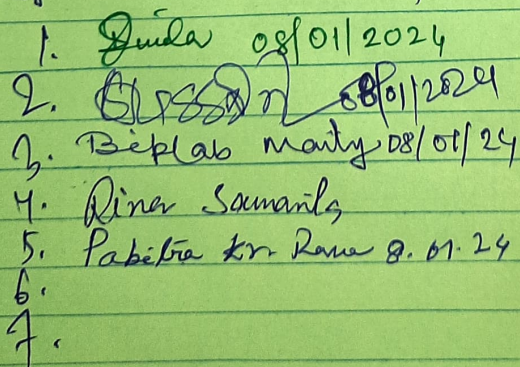 1. 08/01/2024
2. 08/01/2024
3. Biplab Maity 08/01/24
4. Rina Samanta
5. Pabitra kr Rana 8.01.24
6.
7.